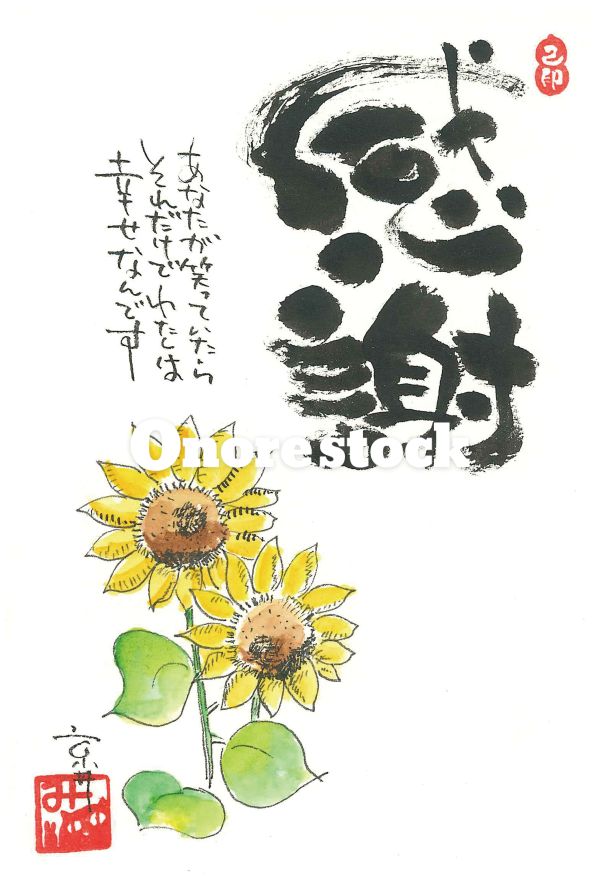 感謝
あなたが笑っていたら
それだけでわたしは
幸せなんです
Onorestock